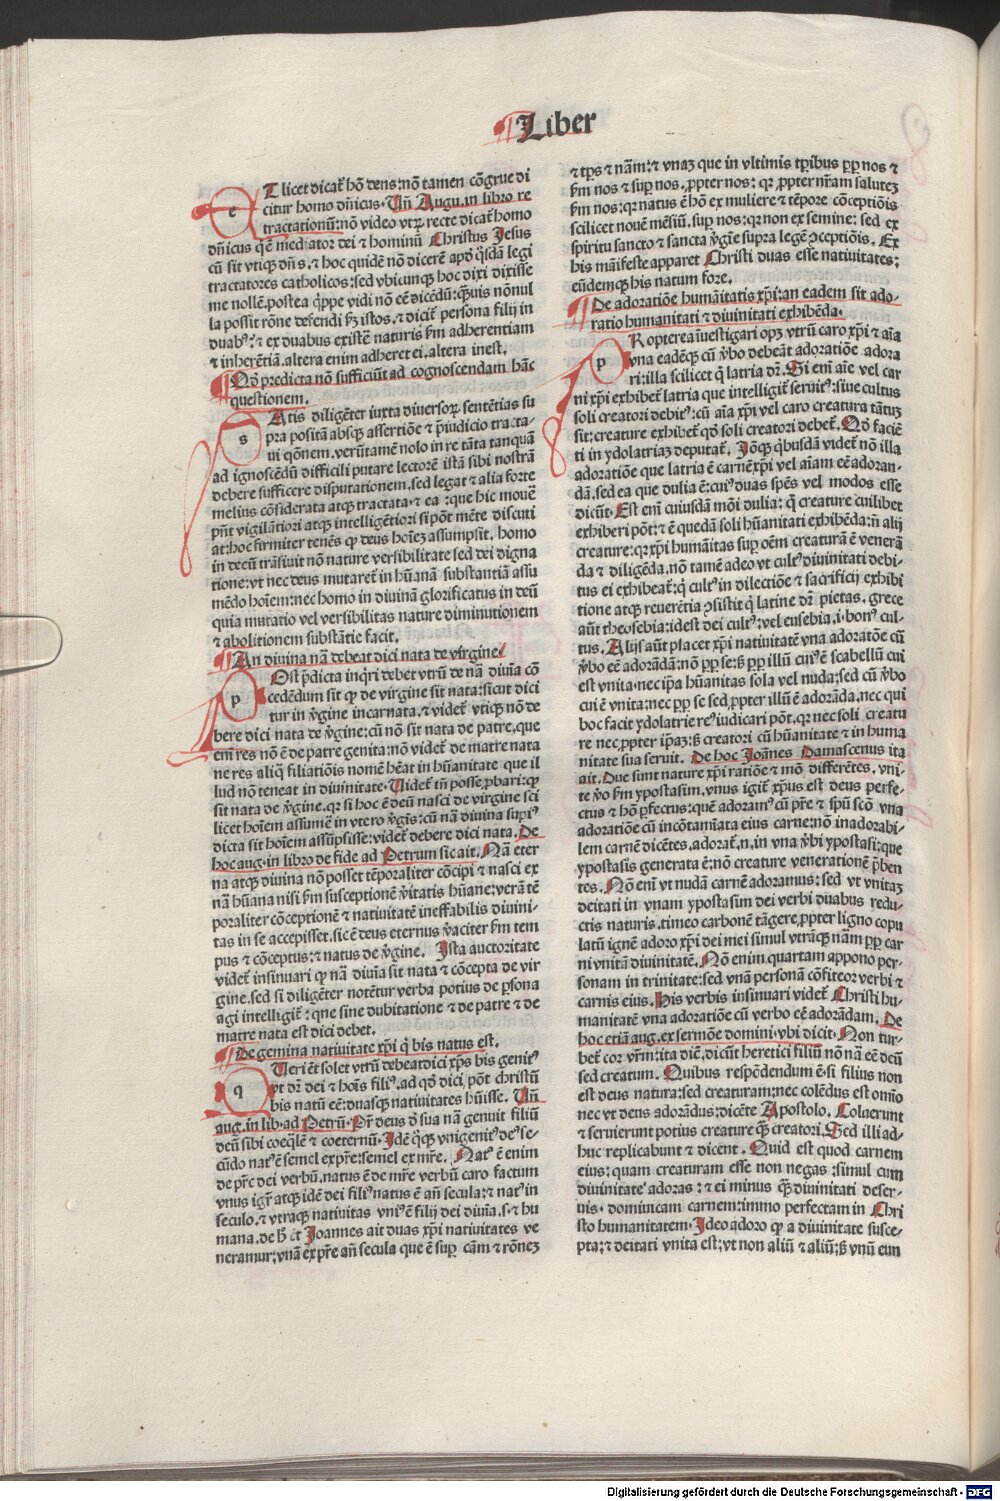 Liber
ET licet dicat̃ hõ deus: nõ tamen cõgrue di
citur homo dñicus. Uñ Augu. in libro re
tractationũ: nõ video vtrũ recte dicat̃ homo
dñicus q̃ ẽ mediator dei ⁊ hominũ Christus Jesus
cũ sit vtiq̃ dñs, ⁊ hoc quidẽ nõ dicerẽ apd̕ q̃sdã legi
tractatores catholicos: sed vbicunq̃ hoc dixi dixisse
me nollẽ. postea q̃ppe vidi nõ eẽ dicẽdũ: q̃uis nõnul
la possit rõne defendi hꝫ istos, ⁊ dicit̃ persona filij in
duabꝰ: ⁊ ex duabus existẽs naturis ẜm adherentiam
⁊ inherẽtiã. altera enim adheret ei. altera inest.
Qd̕ predicta nõ sufficiũt ad cognoscendam hãc
questionem.
SAtis diligẽter iuxta diuersoꝝ sentẽtias su
pra positã absq̃ assertiõe ⁊ p̃iudicio tracta-
ui qõnem. verũtamẽ nolo in re tãta tanquã
ad ignoscẽdũ difficili putare lectorẽ istã sibi nostrã
debere sufficere disputationem. sed legat ⁊ alia forte
melius cõsiderata atq̃ tractata. ⁊ ea: que hic mouẽ
pñt vigilãtiori atq̃ intelligẽtiori si põt mẽte discuti
at: hoc firmiter tenẽs ꝙ deus hoĩeꝫ assumpsit. homo
in deũ trãsiuit nõ nature versibilitate sed dei digna
tione: vt nec deus mutaret̃ in hũanã substantiã assu
mẽdo hoĩem: nec homo in diuinã glorificatus in deũ
quia mutatio vel versibilitas nature diminutionem
⁊ abolitionem substãtie facit.
An diuina nã debeat dici nata de virgine.
POst p̃dicta inq̃ri debet vtrũ de nã diuĩa cõ
cedẽdum sit ꝙ de virgine sit nata: sicut dici
tur in v̕gine incarnata. ⁊ videt̃ vtiq̃ nõ de
bere dici nata de v̕gine: cũ nõ sit nata de patre. que
enĩ res nõ ẽ de patre genita: nõ videt̃ de matre nata
ne res aliq̃ filiatiõis nomẽ hẽat in hũanitate que il
lud nõ teneat in diuinitate. Uidet̃ tñ posse ꝓbari: ꝙ
sit nata de v̕gine. qꝛ si hoc ẽ deũ nasci de virgine sci
licet hoĩem assumẽ in vtero v̕gĩs: cũ nã diuina supiꝰ
dicta sit hoĩem assũpsisse: videt̃ debere dici nata. De
hoc aug. in libro de fide ad Petrum sic ait. Nã eter
na atq̃ diuina nõ posset tẽporaliter cõcipi ⁊ nasci ex
nã hũana nisi ẜm susceptionẽ v̕itatis hũane: verã tẽ
poraliter cõceptionẽ ⁊ natiuitatẽ ineffabilis diuini-
tas in se accepisset. sic ẽ deus eternus v̕aciter ẜm tem
pus ⁊ cõceptus: ⁊ natus de v̕gine. Ista auctoritate
videt̃ insinuari ꝙ nã diuĩa sit nata ⁊ cõcepta de vir
gine. sed si diligẽter notẽtur verba potius de p̱sona
agi intelligit̃: que sine dubitatione ⁊ de patre ⁊ de
matre nata est dici debet.
De gemina natiuitate xp̃i q̃ bis natus est.
QUeri ẽt solet vtrũ debeat dici xp̃s bis genitꝰ
vt dr̃ dei ⁊ hoĩs filiꝰ. ad qd̕ dici põt christũ
bis natũ eẽ: duasq̃ natiuitates hũisse. Uñ
aug. in lib. ad Petrũ. Pr̃ deus d̕ sua nã genuit filiũ
deũ sibi coeq̃lẽ ⁊ coeternũ. Idẽ q̃q̃ vnigenitꝰ deꝰ se-
cũdo natꝰ ẽ semel ex pr̃e: semel ex mr̃e. Natꝰ ẽ enim
de pr̃e dei verbũ. natus ẽ de mr̃e verbũ caro factum
vnus igr̃ atq̃ idẽ dei filiꝰ natus ẽ añ secula: ⁊ natꝰ in
seculo. ⁊ vtraq̃ natiuitas vniꝰ ẽ filij dei diuĩa. s. ⁊ hu
mana. de h̕ ẽt Joannes ait duas xp̃i natiuitates ve
neramur: vnã ex pr̃e añ secula que ẽ sup cãm ⁊ rõneꝫ
⁊ tp̃s ⁊ nãm: ⁊ vnaꝫ que in vltimis tp̃ibus ꝓp nos ⁊
ẜm nos ⁊ sup̱ nos. ꝓpter nos: qꝛ ꝓpter nr̃am saluteꝫ
ẜm nos: qꝛ natus ẽ hõ ex muliere ⁊ tẽpore cõceptiõis
scilicet nouẽ mẽsiũ. sup̱ nos: qꝛ non ex semine: sed ex
spiritu sancto ⁊ sancta v̕gĩe supra legẽ ꝯceptiõis. Ex
his mãifeste apparet Christi duas esse natiuitates:
eũdemq̃ bis natum fore.
De adoratiõe humãitatis xp̃i: an eadem sit ado-
ratio humanitati ⁊ diuinitati exhibẽda.
PRopterea ĩuestigari opꝫ vtrũ caro xp̃i ⁊ aĩa
vna eadẽq̃ cũ v̕bo debeãt adoratiõe adora
ri: illa scilicet q̃ latria dr̃. Si enĩ aĩe vel car
ni xp̃i exhibet̃ latria que intelligit̃ seruitꝰ: siue cultus
soli creatori debitꝰ: cũ aĩa xp̃i vel caro creatura tãtuꝫ
sit: creature exhibet̃ qd̕ soli creatori debet̃. Qd̕ faciẽ
ti in ydolatriaꝫ deputat̃. Jõq̃ q̃busdã videt̃ nõ illa
adoratiõe que latria ẽ carnẽ xp̃i vel aĩam eẽ adoran-
dã. sed ea que dulia ẽ: cuiꝰ duas spẽs vel modos esse
dicũt. Est enĩ cuiusdã mõi dulia: q̃ creature cuilibet
exhiberi põt: ⁊ ẽ quedã soli hũanitati exhibẽda: ñ alij
creature: qꝛ xp̃i humãitas sup̱ oẽm creaturã ẽ venerã
da ⁊ diligẽda. nõ tamẽ adeo vt cultꝰ diuinitati debi-
tus ei exhibeat̃: q̃ cultꝰ in dilectiõe ⁊ sacrificij exhibi
tione atq̃ reuerẽtia ꝯsistit q̃ latine dr̃ pietas. grece
aũt theosebia: idest dei cultꝰ: vel eusebia. i. bonꝰ cul-
tus. Alijs aũt placet xp̃i natiuitatẽ vna adoratõe cũ
v̕bo eẽ adorãdã: nõ ꝓp se: ẞ ꝓp illũ cuiꝰ ẽ scabellũ cui
est vnita. nec ip̃a hũanitas sola vel nuda: sed cũ v̕bo
cui ẽ vnita: nec ꝓp se sed ꝓpter illũ ẽ adorãda. nec qui
hoc facit ydolatrie reꝰ iudicari põt. qꝛ nec soli creatu
re nec ꝓpter ip̃aꝫ: ẞ creatori cũ hũanitate ⁊ in huma
nitate sua seruit. De hoc Joãnes Damascenus ita
ait. Due sunt nature xp̃i ratiõe ⁊ mõ differẽtes. vni-
te v̕o ẜm ypostasim. vnus igit̃ xp̃us est deus perfe-
ctus ⁊ hõ p̱fectus: quẽ adoramꝰ cũ pr̃e ⁊ spũ scõ vna
adoratiõe cũ incõtamĩata eius carne: nõ inadorabi-
lem carnẽ dicẽtes. adorat̃. n. in vna v̕bi ypostasi: que
ypostasis generata ẽ: nõ creature venerationẽ p̃ben
tes. Nõ enĩ vt nudã carnẽ adoramus: sed vt vnitaꝫ
deitati in vnam ypostasim dei verbi duabus redu-
ctis naturis. timeo carbonẽ tãgere ꝓpter ligno copu
latũ ignẽ adoro xp̃i dei mei simul vtrãq̃ nãm ꝓp car
ni vnitã diuinitatẽ. Nõ enim quartam appono per-
sonam in trinitate: sed vnã personã cõfiteoꝛ verbi ⁊
carnis eius. His verbis insinuari videt̃ Christi hu-
manitatẽ vna adoratiõe cũ verbo eẽ adorãdam. De
hoc etiã aug. ex sermõe domini. vbi dicit. Non tur-
bet̃ coꝛ vr̃m: ita diẽ, dicũt heretici filiũ nõ nã eẽ deũ
sed creatum. Quibus respõdendum ẽ. si filius non
est deus natura: sed creaturam: nec colẽdus est omĩo
nec vt deus adorãdus: dicẽte Apostolo. Coluerunt
⁊ seruierunt potius creature q̃ creatori. Sed illi ad-
huc replicabunt ⁊ dicent. Quid est quod carnem
eius: quam creaturam esse non negas: simul cum
diuinitate adoras: ⁊ ei minus q̃ diuinitati deser-
uis. dominicam carnem: immo perfectam in Chri
sto humanitatem. Ideo adoro ꝙ a diuinitate susce-
pta: ⁊ deitati vnita est: vt non aliũ ⁊ aliũ: ẞ vnũ eun
Digitalisierung gefördert durch die Deutsche Forschungsgemeinschaft - DFG